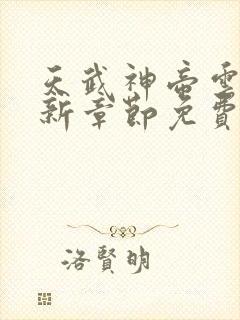 天武神帝雲
新章節免費
洛賢明